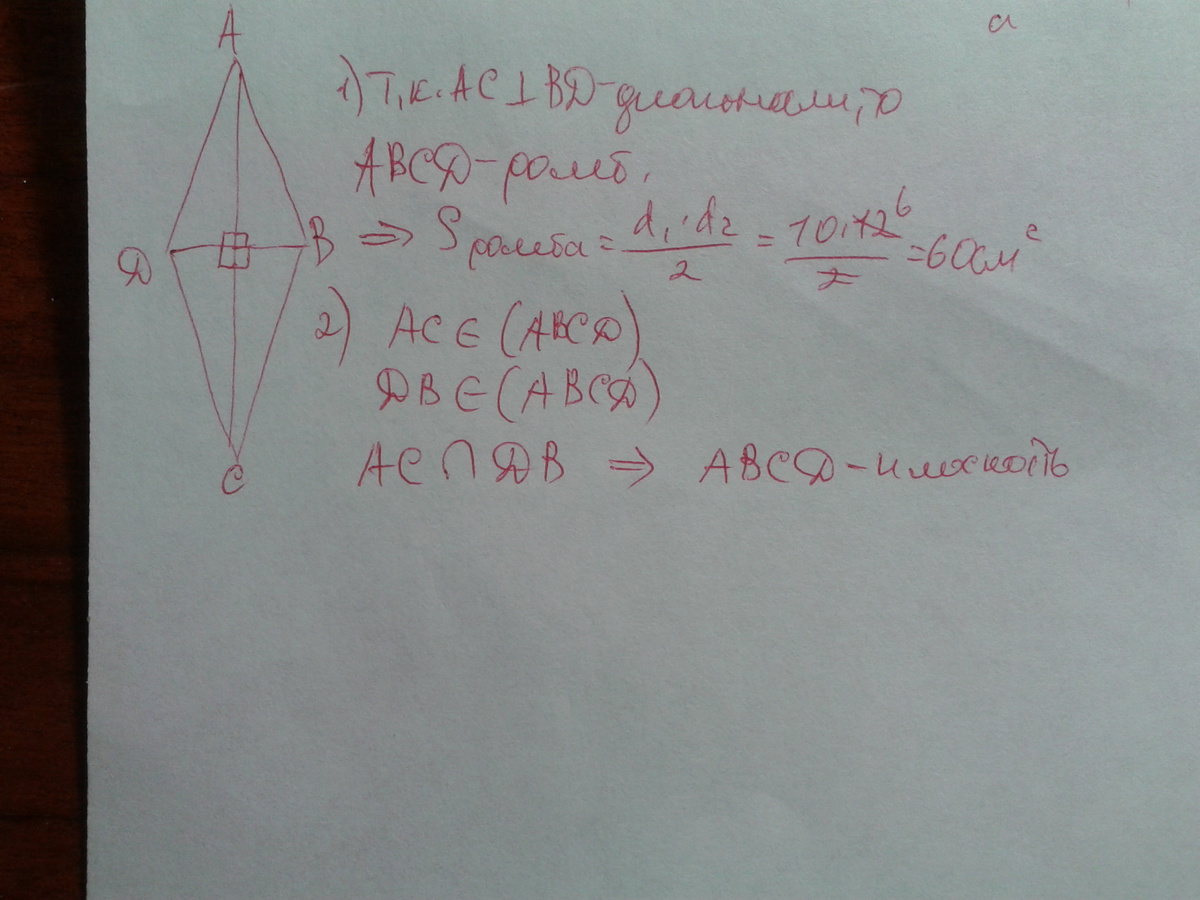 a
A
1) Т.к. AC ⊥ BD - диагонали, то
ABCD - ромб.
D
B ⇒ S ромба = d₁·d₂/2 = 10·12⁶/2 = 60см²
2) AC ∈ (ABCD)
DB ∈ (ABCD)
AC ∩ DB ⇒ ABCD - плоскость
C